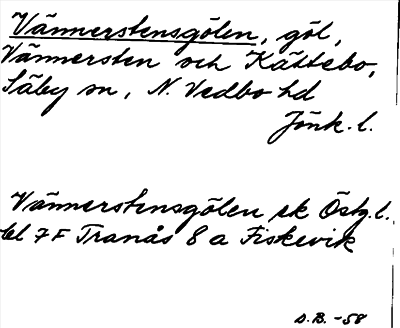 Vännerstensgölen, göl,
Vännersten och Kättebo,
Säby sn, N. Vedbo hd
Jönk. l.
Vännerstensgölen ek Östg. l.
bl 7F Tranås 8 a Fiskevik
D.B. -58